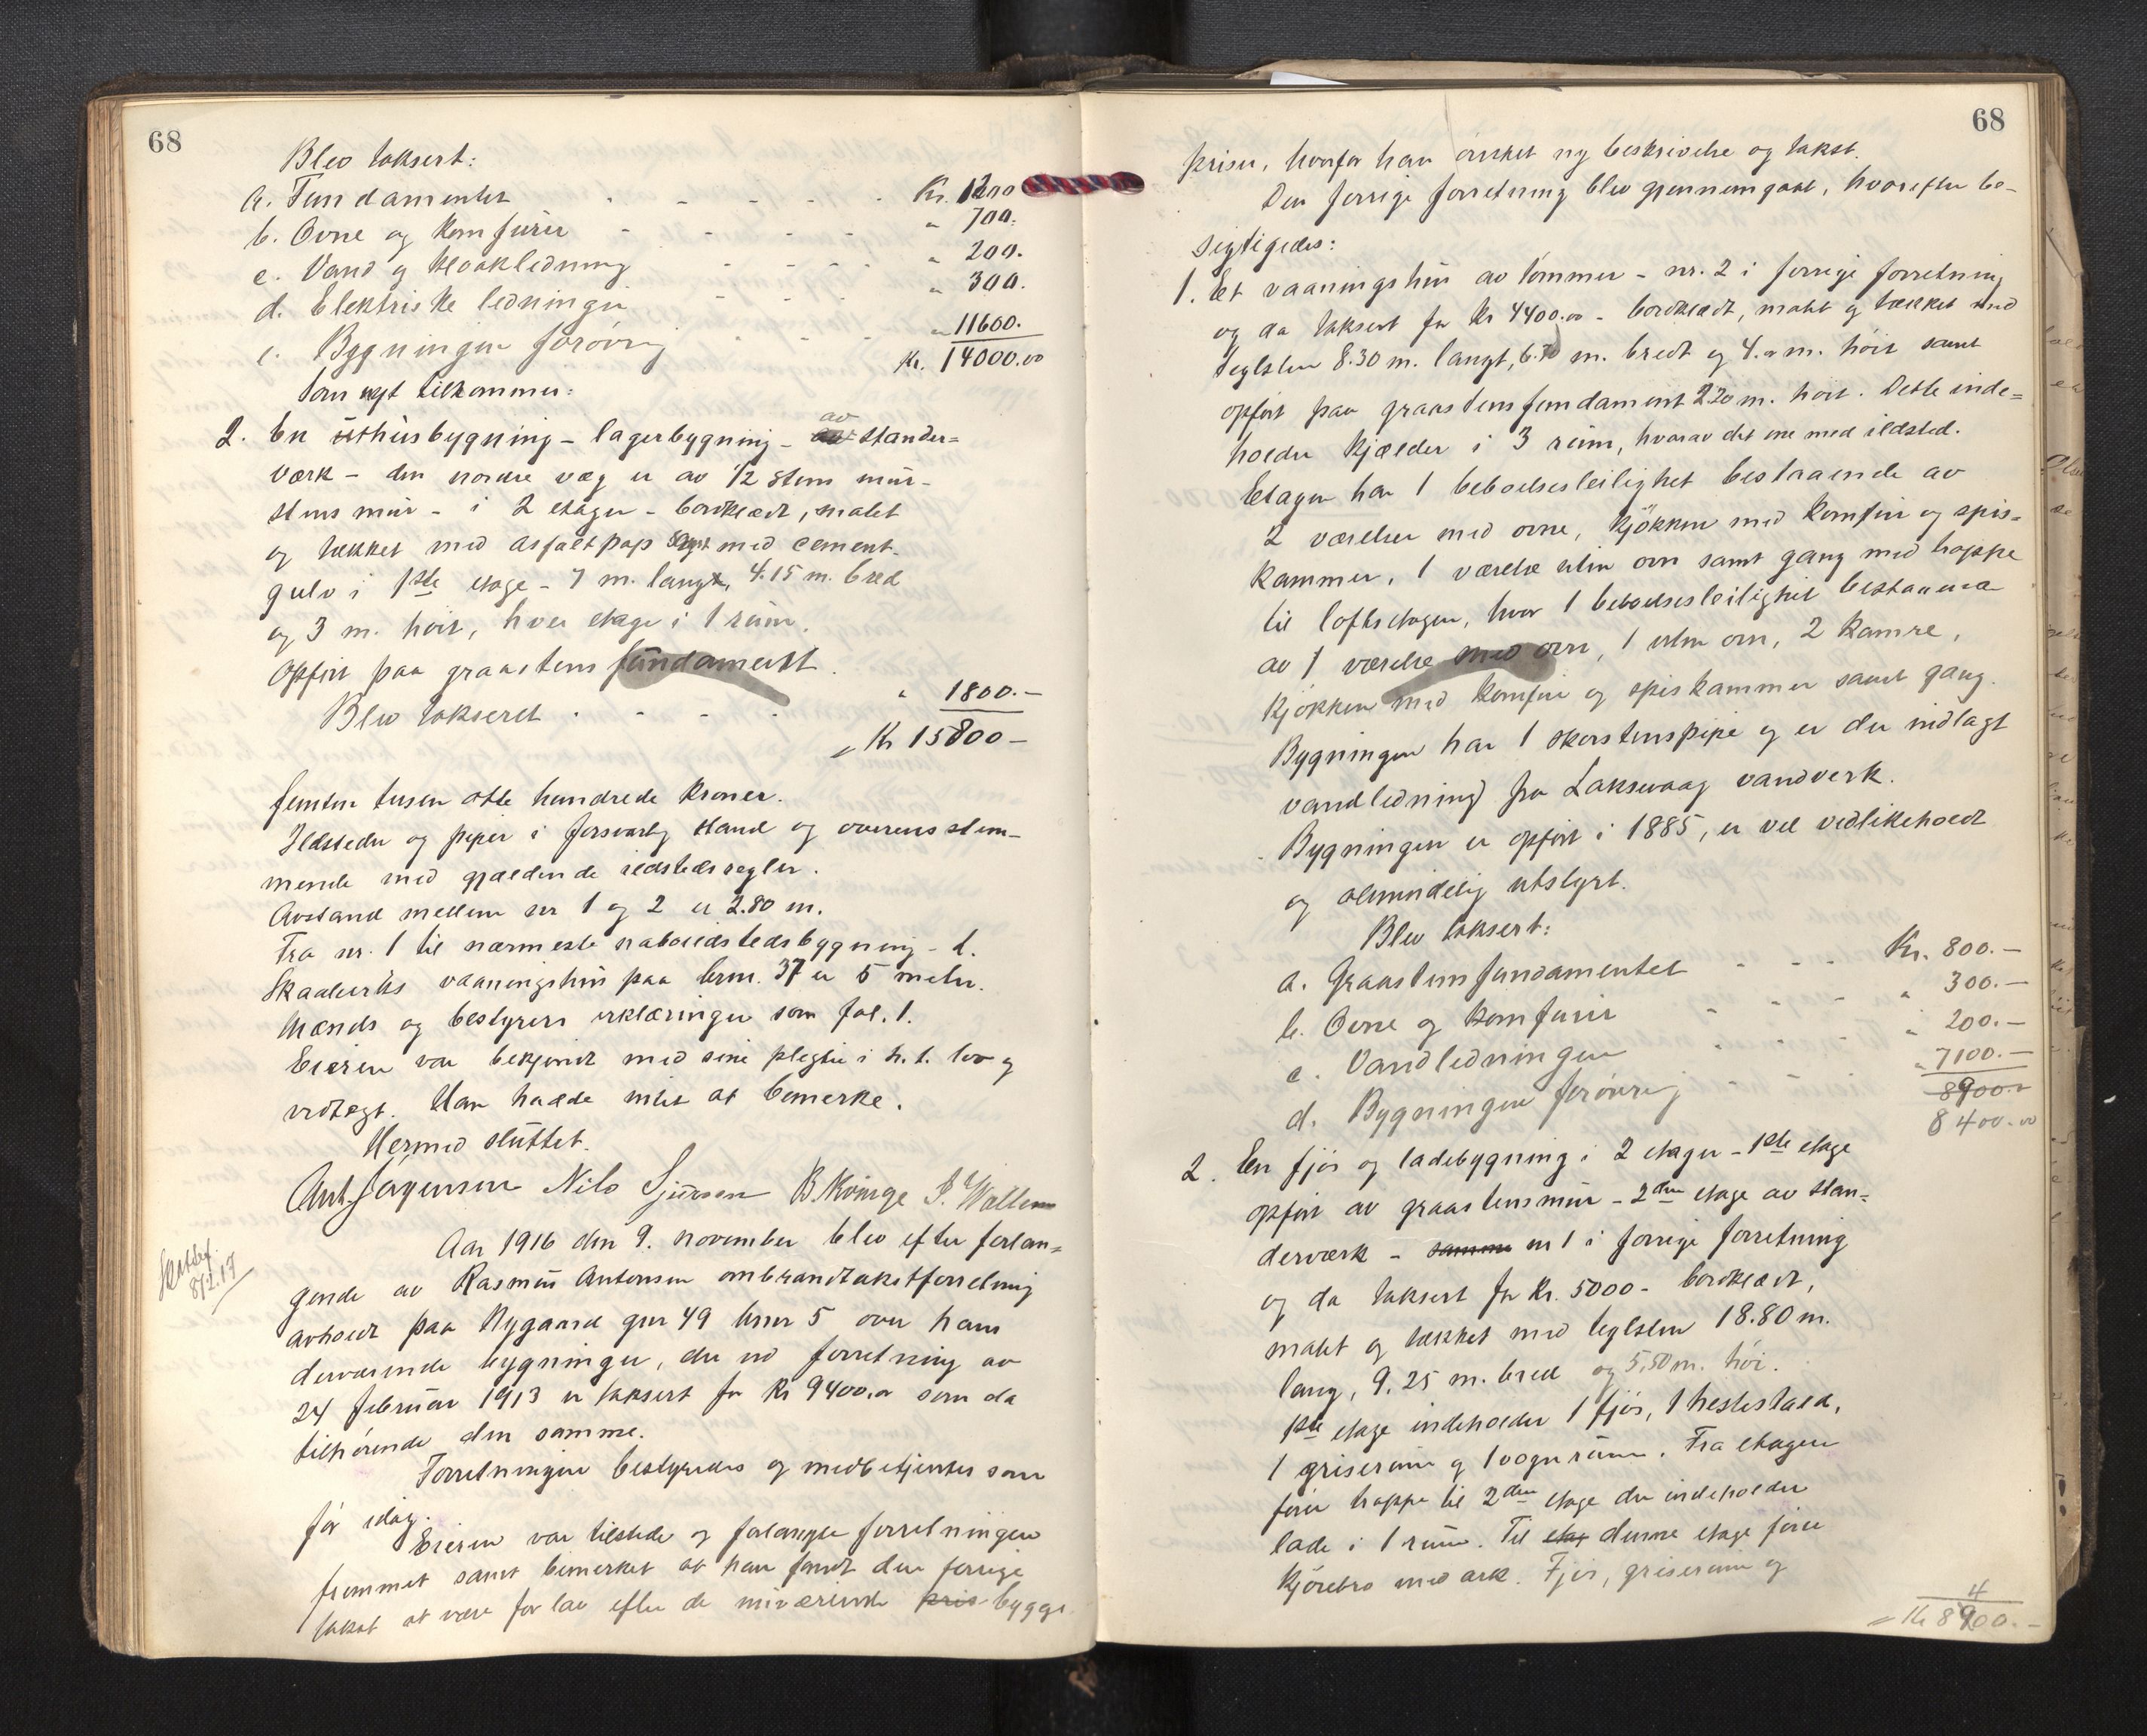 68
Blev taksert:
a. Fundamentet - - - - - Kr. 1200
b. Ovne og komfurer - - - - - " 700.
c. Vand og kloakledning - - - - " 200.
d. Elektriske ledninger - - - " 300.
e. Bygningen forøvrig - - - " 11600.
Kr. 14000.00
Som nyt tilkommer:
2. En uthusbygning - lagerbygning - av stander-
verk - den nordre væg er av 1/2 stens mur-
stens mur - i 2 etager - bordklædt, malet
og tækket med asfaltpap samt med cement-
gulv i 1ste etage - 7 m. lang, 4.15 m. bred
og 3 m. høit, hver etage i 1 rum.
Opført paa graastens fundament.
Blev takseret - - - " 1800.-
Kr 15800-
femten tusen otte hundrede kroner.
Ildsteder og piper i forsvarlig stand og overensstem-
mende med gjældende ildstedsregler.
Avstand mellem nr 1 og 2 er 2.80 m.
Fra nr. 1 til nærmeste naboildstedsbygning - L.
Skaaleviks vaaningshus paa brnr. 37 er 5 meter.
Mænds og bestyrers erklæringer som fol. 1.
Eieren var bekjendt med sine plegter i h. t. lov og
vedtægt. Han hadde intet at bemerke.
Hermed sluttet.
Ant. Jørgensen Nils Sjursen B. Kvinge J. Wallem
Skattef.
8/2.17
Aar 1916 den 9. november blev efter forlan-
gende av Rasmus Antonsen ombrandtakstforretning
avholdt paa Nygaard gnr 49 bnr 5 over hans
derværende bygninger, der ved forretning av
24 februar 1913 er taksert for Kr 9400.00 som da
tilhørende den samme.
Forretningen bestyredes og medbetjentes som
før idag.
Eieren var tilstede og forlangte forretningen
fremmet samt bemerket at han fandt den forrige
takst at være for lav efter de nuværende pris bygge-
68
priser, hvorfor han ønsket ny beskrivelse og takst.
Den forrige forretning blev gjennemgaat, hvorefter be-
sigtigedes:
1. Et vaaningshus av tømmer - nr. 2 i forrige forretning
og da taksert for Kr 4400.00 - bordklædt, malet og tækket med
teglsten 8.30 m. langt, 6.70 m. bredt og 4.00 m. høit samt
opført paa graastensfundament 2.20 m. høit. Dette inde-
holder kjælder i 3 rum, hvorav det ene med ildsted.
Etagen har 1 beboelsesleilighet bestaaende av
2 værelser med ovne, kjøkken med komfur og spis-
kammer, 1 værelse uten ovn samt gang med trappe
til loftsetagen, hvor 1 beboelsesleilighet bestaaende
av 1 værelse med ovn, 1 uten ovn, 2 kamre,
kjøkken med komfur og spiskammer samt gang.
Bygningen har 1 skorstenspipe og er der indlagt
vandledning fra Laksevaag vandverk.
Bygningen er opført i 1885, er vel vedlikeholdt
og almindelig utstyrt.
Blev taksert:
a. Graastensfundamentet - - - Kr. 800.-
b. Ovne og komfurer - - - " 300.-
c. Vandledningen - - - " 200.-
d. Bygningen forøvrig - - - " 7100.-
8900.-
8400.00
2. En fjøs og ladebygning i 2 etager - 1ste etage
opført av graastensmur - 2den etage av stan-
derværk - samme nr 1 i forrige forretning
og da taksert for Kr. 5000 - bordklædt,
malet og tækket med teglsten 18.80 m.
lang, 9.25 m. bred og 5,50 m. høi.
1ste etage indeholder 1 fjøs, 1 hestestald,
1 griserum og 1 vognrum. Fra etagen
fører trappe til 2den etage der indeholder
lade i 1 rum. Til etag denne etage fører
kjørebro med ark. Fjøs, griserum og
4
Kr 8900.-